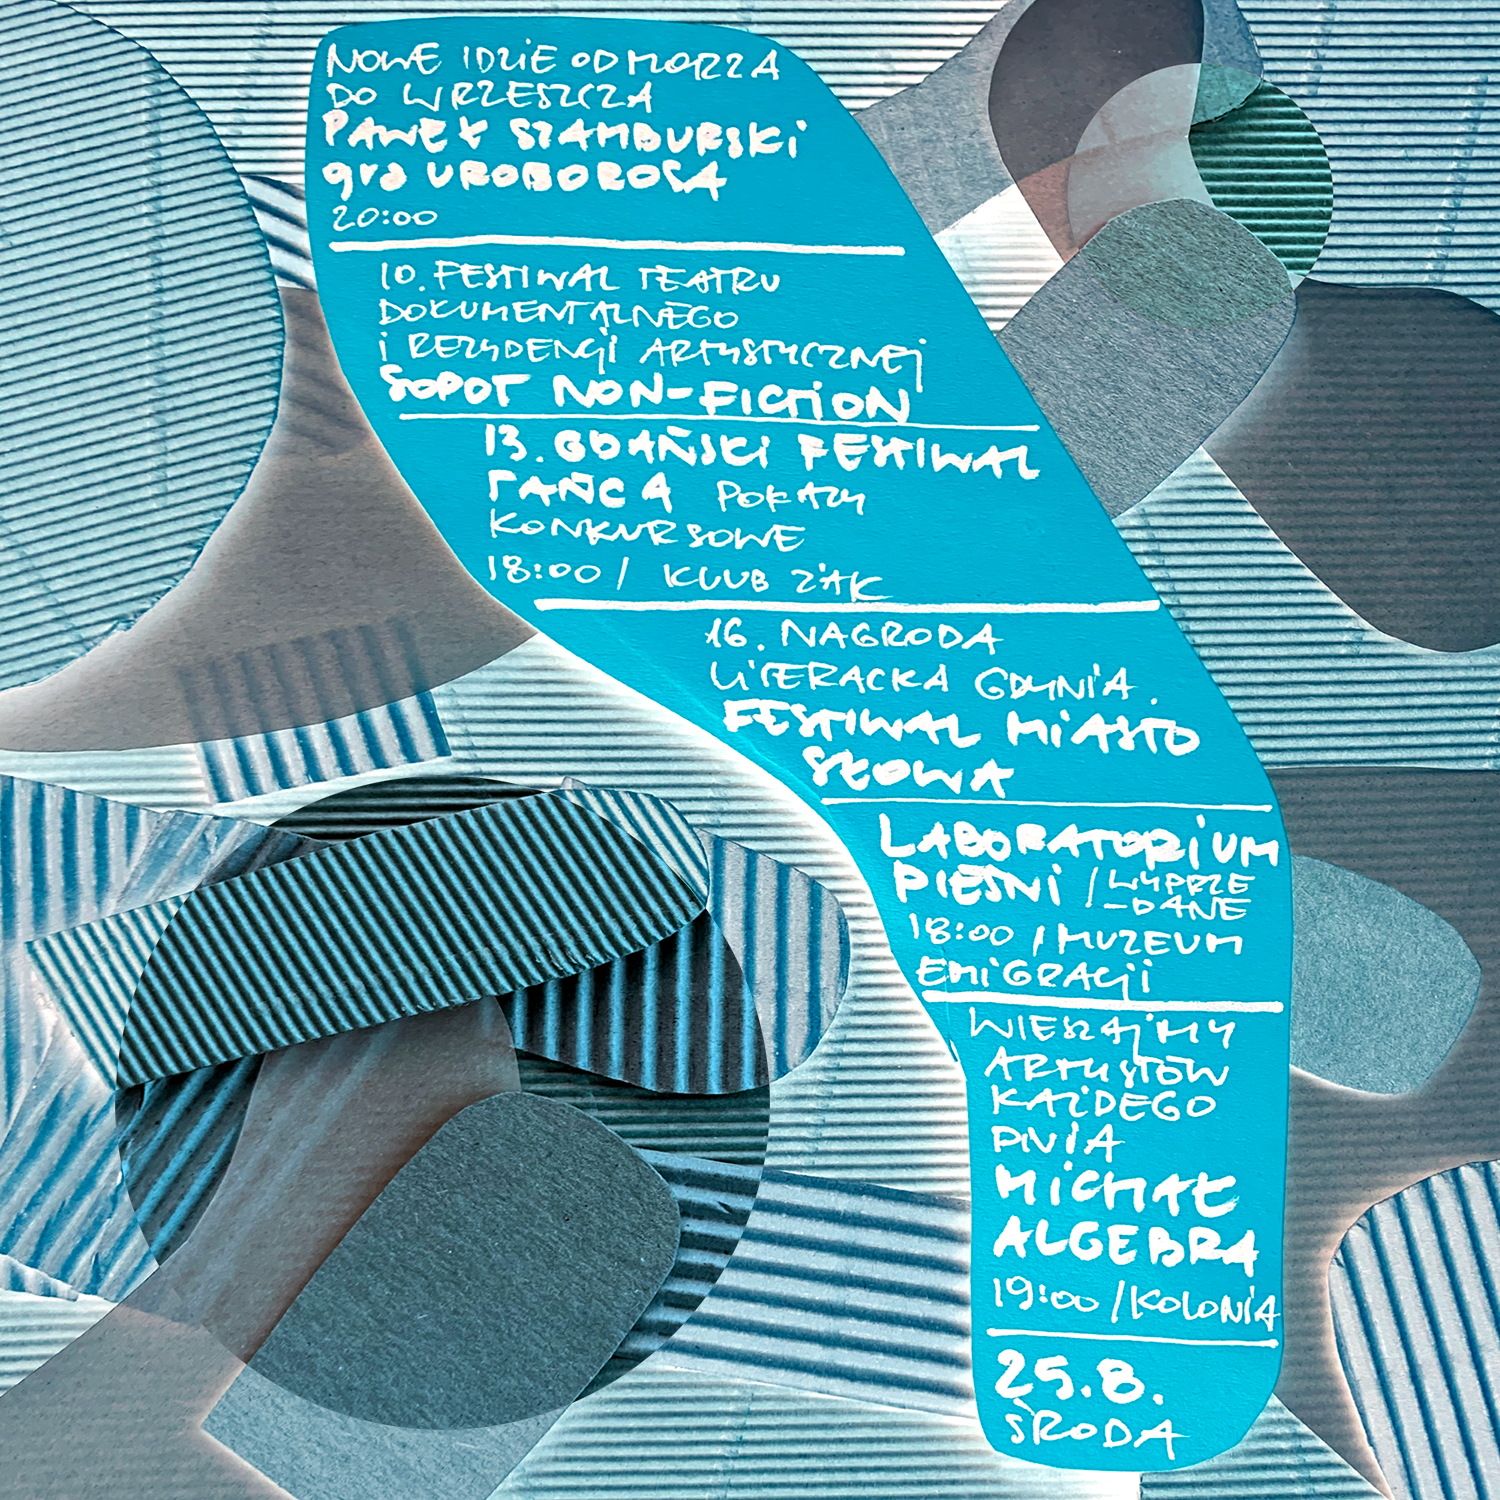 NOWE IDZIE OD MORZA
DO WRZESZCZA
PAWEŁ SZAMBURSKI
gra UROBOROSA
20:00
10. FESTIWAL TEATRU
DOKUMENTALNEGO
i REZYDENCJI ARTYSTYCZNEJ
SOPOT NON-FICTION
13. GDAŃSKI FESTIWAL
TAŃCA POKAZY
KONKURSOWE
18:00 / KLUB ŻAK
16. NAGRODA
LITERACKA GDYNIA.
FESTIWAL MIASTO
SŁOWA
LABORATORIUM
PIEŚNI / WYPRZE
-DANE
18:00 / MUZEUM
EMIGRACJI
WIESZAJMY
ARTYSTÓW
KAŻDEGO
DNIA
MICHAŁ
ALGEBRA
19:00 / KOLONIA
25.8.
ŚRODA